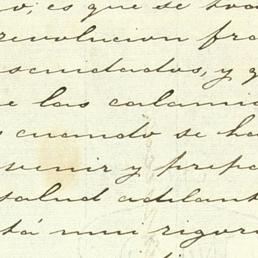 o; es que se tra
revolucion fra
scudados, y q
e las calami
s cuando se ha
venir y prepa
salud adelant
stá muy rigoro